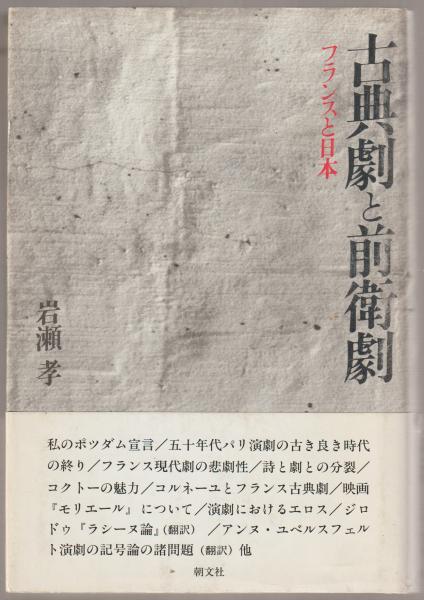 古典劇と前衛劇
フランスと日本
岩瀬 孝
私のポツダム宣言／五十年代パリ演劇の古き良き時代
の終り／フランス現代劇の悲劇性／詩と劇との分裂／
コクトーの魅力／コルネーユとフランス古典劇／映画
『モリエール』について／演劇におけるエロス／ジロ
ドゥ『ラシーヌ論』（翻訳）／アンヌ・ユベルスフェル
ト演劇の記号論の諸問題（翻訳）他
朝文社